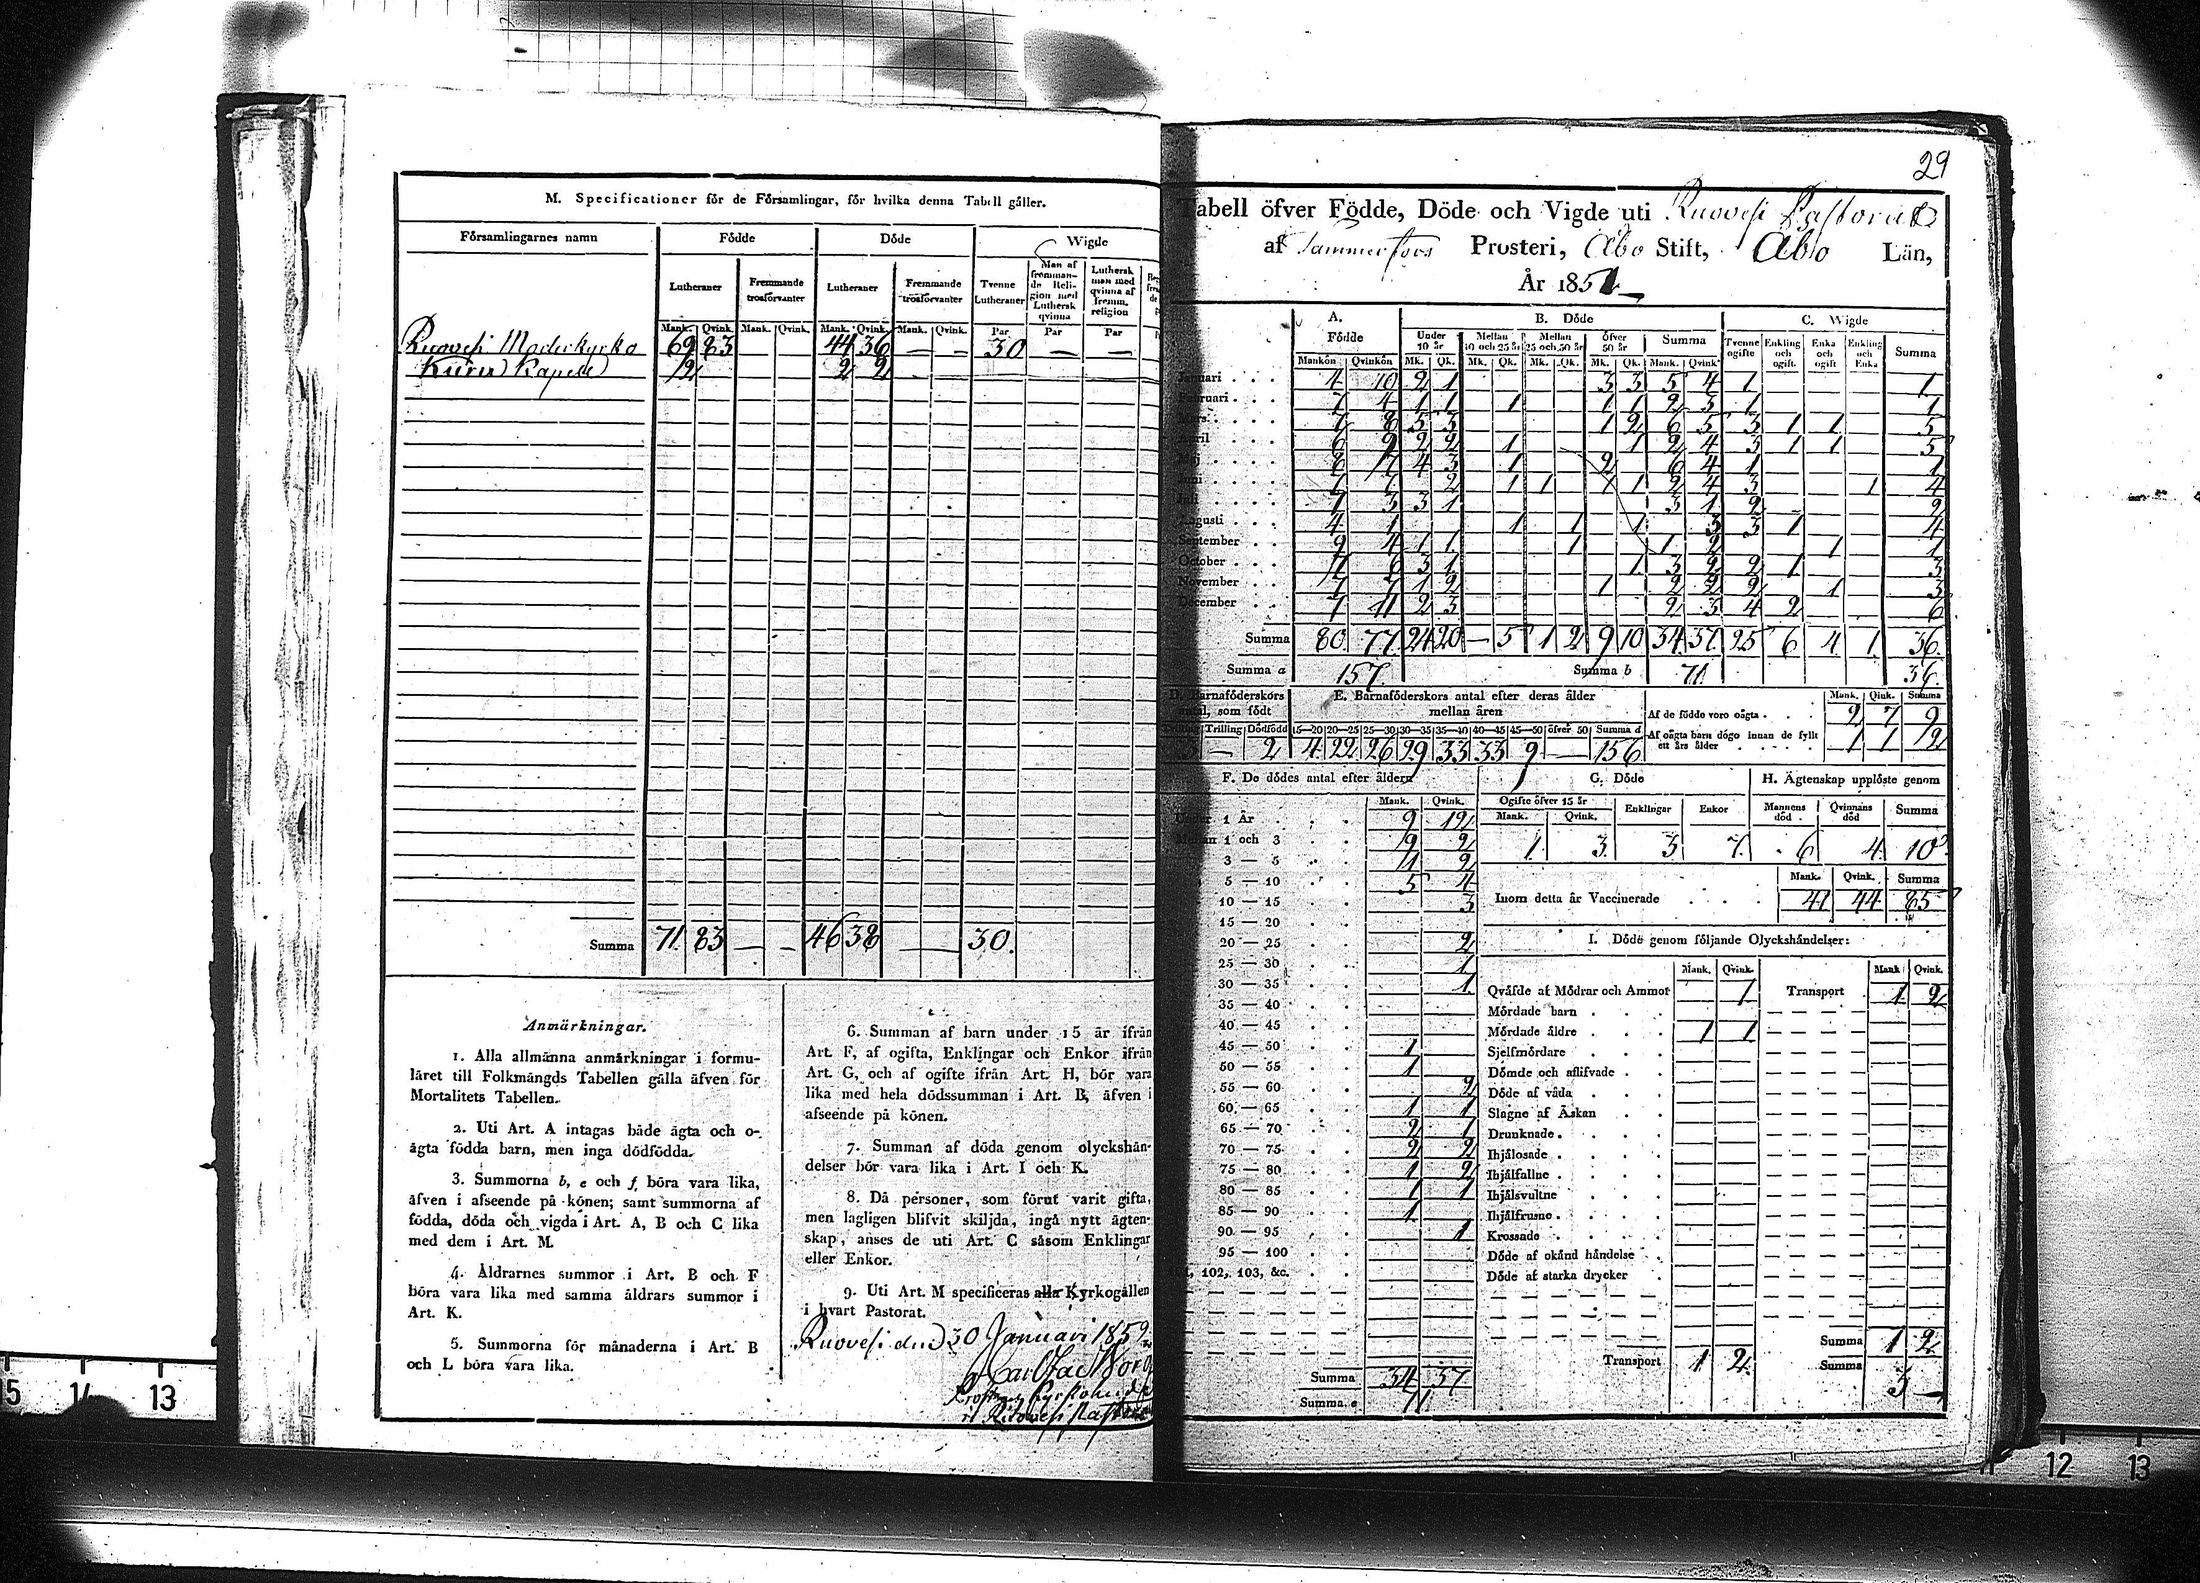 M. Specificationer för de Församlingar, för hvilka denna Tabell gäller.
Församlingarnes namn Födde Döde Wigde
Lutheraner Fremmande trosförvanter Lutheraner Fremmande trosförvanter Tvenne Lutheraner Man af fremmande Religion med Luthersk qvinna Luthersk man med qvinna af fremm. religion
Mank. Qvink. Mank. Qvink. Mank. Qvink. Mank. Qvink. Par Par Par
Ruovesi Moderkyrka 69 83 44 36 — — 30 — —
Kapell 2 2 2
Summa 71 83 — — 46 38 — — 30.
Anmärkningar.
1. Alla allmänna anmärkningar i formu-
läret till Folkmängds Tabellen gälla äfven för
Mortalitets Tabellen.
2. Uti Art. A intagas både ägta och o-
ägta födda barn, men inga dödfödda.
3. Summorna b, e och f, böra vara lika,
äfven i afseende på könen; samt summorna af
födda, döda och vigda i Art. A, B och C lika
med dem i Art. M.
4. Åldrarnes summor i Art. B och F
böra vara lika med samma åldrars summor i
Art. K.
5. Summorna för månaderna i Art. B
och L böra vara lika.
6. Summan af barn under 15 är ifrån
Art. F, af ogifta, Enklingar och Enkor ifrån
Art. G, och af ogifte ifrån Art. H, bör vara
lika med hela dödssumman i Art. B, äfven i
afseende på könen.
7. Summan af döda genom olyckshän-
delser bör vara lika i Art. I och K.
8. Då personer, som förut varit gifta,
men lagligen blifvit skiljda, ingå nytt ägten-
skap, anses de uti Art. C såsom Enklingar
eller Enkor.
9. Uti Art. M specificeras alla Kyrkogällen
i hvart Pastorat.
Ruovesi den 30 Januari 1852
29
Tabell öfver Födde, Döde och Vigde uti Ruovesi Pastorat
af Tammerfors Prosteri, Åbo Stift, Åbo Län,
År 1851
A. B. Döde C. Wigde
Födde Under 10 år Mellan 10 och 25 år Mellan 25 och 50 år Öfver 50 år Summa Tvenne ogifte Enkling och ogift. Enka och ogift Enkling och Enka Summa
Mankön Qvinkön Mk. Qk. Mk. Qk. Mk. Qk. Mk. Qk. Mank. Qvink
Januari 4 10 2 1 3 3 5 4 1 1
Februari 7 4 1 1 1 1 1 2 3 1 1
Mars 8 5 3 1 2 6 5 3 1 1 5
April 6 9 2 2 1 1 2 4 3 1 1 5
Maj 4 3 1 2 6 4 1 1
Juni 2 1 1 1 1 2 4 3 1 4
Juli 7 3 3 1 3 1 2 2
Augusti 4 1 1 1 1 3 3 1 4
September 9 4 1 1 1 1 2 1 1
October 11 6 3 1 1 3 2 2 1 3
November 7 7 1 2 1 2 2 2 1 3
December 7 11 2 3 2 3 4 2 6
Summa 80 77 24 20 — 5 1 2 9 10 34 37 25 6 4 1 36
Summa a 157. Summa b 71. 36.
D. Barnaföderskors antal, som födt
E. Barnaföderskors antal efter deras ålder mellan åren
Trilling Dödfödd 15—20 20—25 25—30 30—35 35—40 40—45 45—50 öfver 50 Summa d
— 2 4 22 26 29 33 33 9 — 156
Mank. Qink. Summa
Af de födde voro oägta 2 7 9
Af oägta barn dögo innan de fyllt ett års ålder 1 1 2
F. De dödes antal efter åldern
Mank. Qvink.
Under 1 År 9 12
Mellan 1 och 3 9 2
3 — 5 1 2
5 — 10 5 4
10 — 15 3
15 — 20
20 — 25 2
25 — 30 1
30 — 35 1
35 — 40
40 — 45
45 — 50 1
50 — 55 1
55 — 60 2
60 — 65 1 1
65 — 70 2 1
70 — 75 2 2
75 — 80 1 2
80 — 85 1 1
85 — 90 1
90 — 95 1
95 — 100
102, 103, &c.
Summa 34 37
Summa e 71
G. Döde
Ogifte öfver 15 år Enklingar Enkor
Mank. Qvink.
1. 3. 3 7.
H. Ägtenskap upplöste genom
Mannens död Qvinnans död Summa
6 4 10
Mank. Qvink. Summa
Inom detta år Vaccinerade 41 44 85
I. Döde genom följande Olyckshändelser:
Mank. Qvink. Mank Qvink.
Qväfde af Mödrar och Ammor 1 Transport 1 2
Mördade barn
Mördade äldre 1 1
Sjelfmördare
Dömde och aflifvade
Döde af våda
Slagne af Åskan
Drunknade
Ihjälosade
Ihjälfallne
Ihjälsvultne
Ihjälfrusne
Krossade
Döde af okänd händelse
Döde af starka drycker
Summa 1 2
Transport 1 2 Summa 3
15 14 13
11 12 13